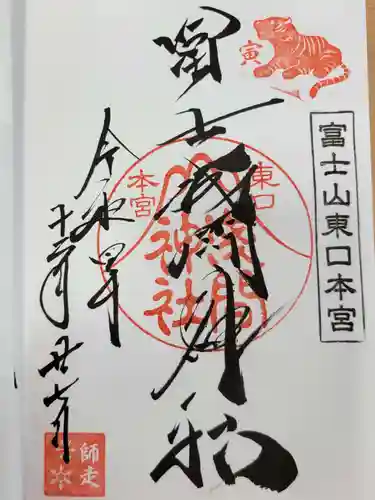 寅
富士山東口本宮
冨士浅間神社
東口
本宮
浅間
神社
令和四年
十二月廿七日
師走